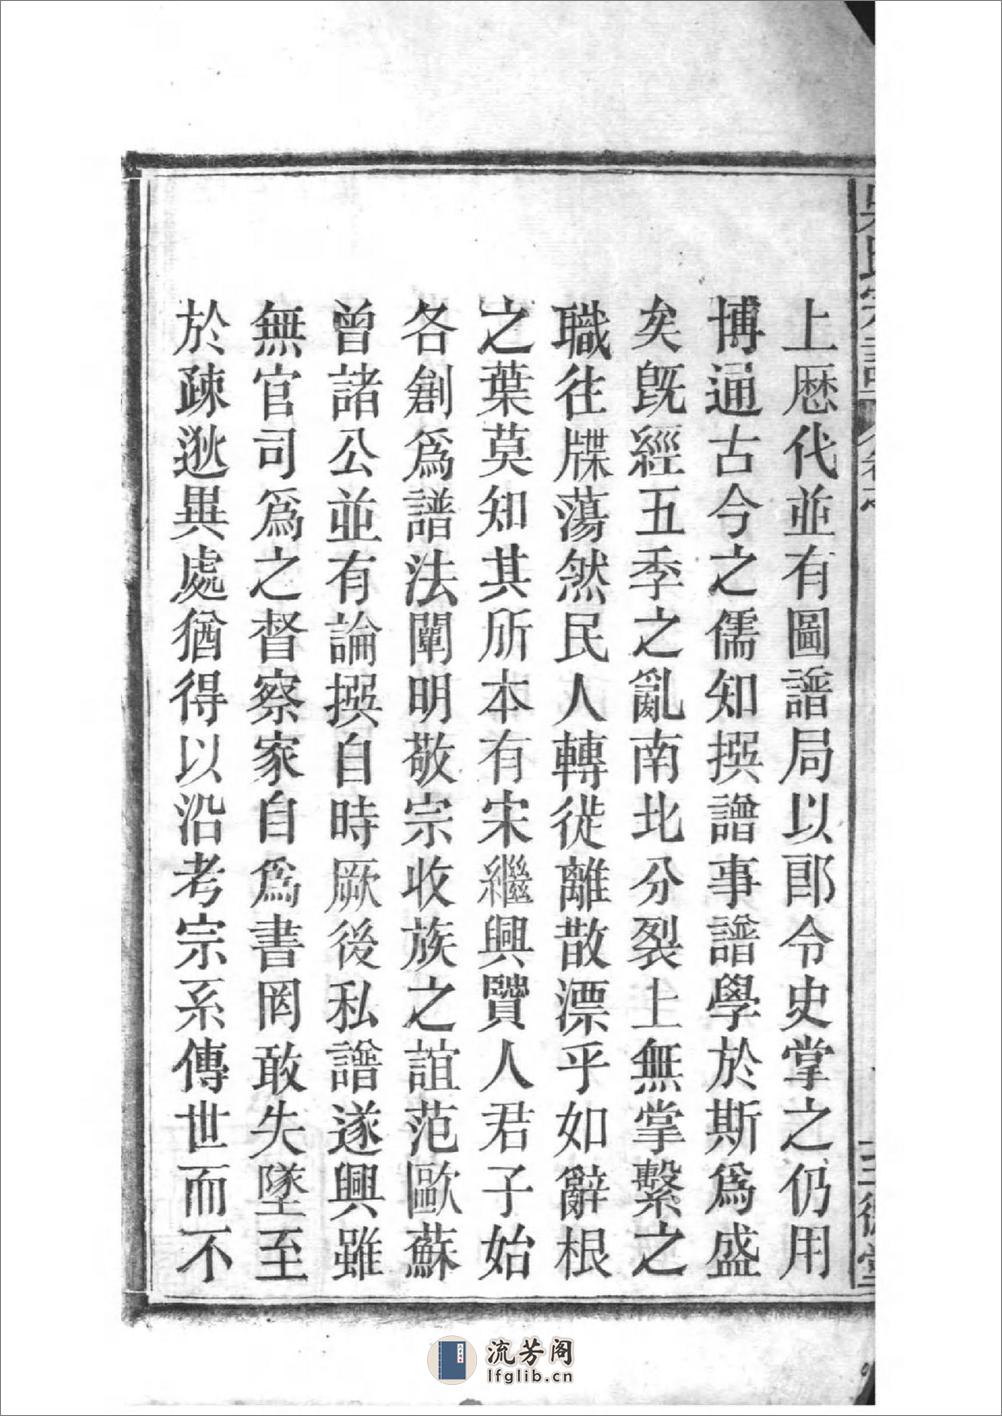 上厯代並有圖譜局以郎令史掌之仍用
博通古今之儒知撰譜事譜學於斯爲盛
矣旣經五季之亂南北分裂上無掌繫之
職往牒蕩然民人轉徙離散漂乎如辭根
之葉莫知其所本有宋繼興賢人君子始
各創爲譜法闡明敬宗收族之誼范歐蘇
曾諸公並有論撰自時厥後私譜遂興雖
無官司爲之督察家自爲書罔敢失墜至
於疎逖異處猶得以沿考宗系傳世而不
流芳阁
lfglib.cn